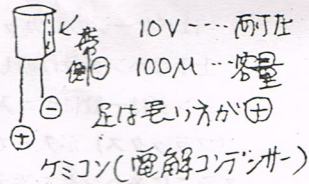 10V‥‥耐圧
帯側⊖
100M‥‥容量
足は長い方が⊕
⊖
⊕
ケミコン(電解コンデンサー)